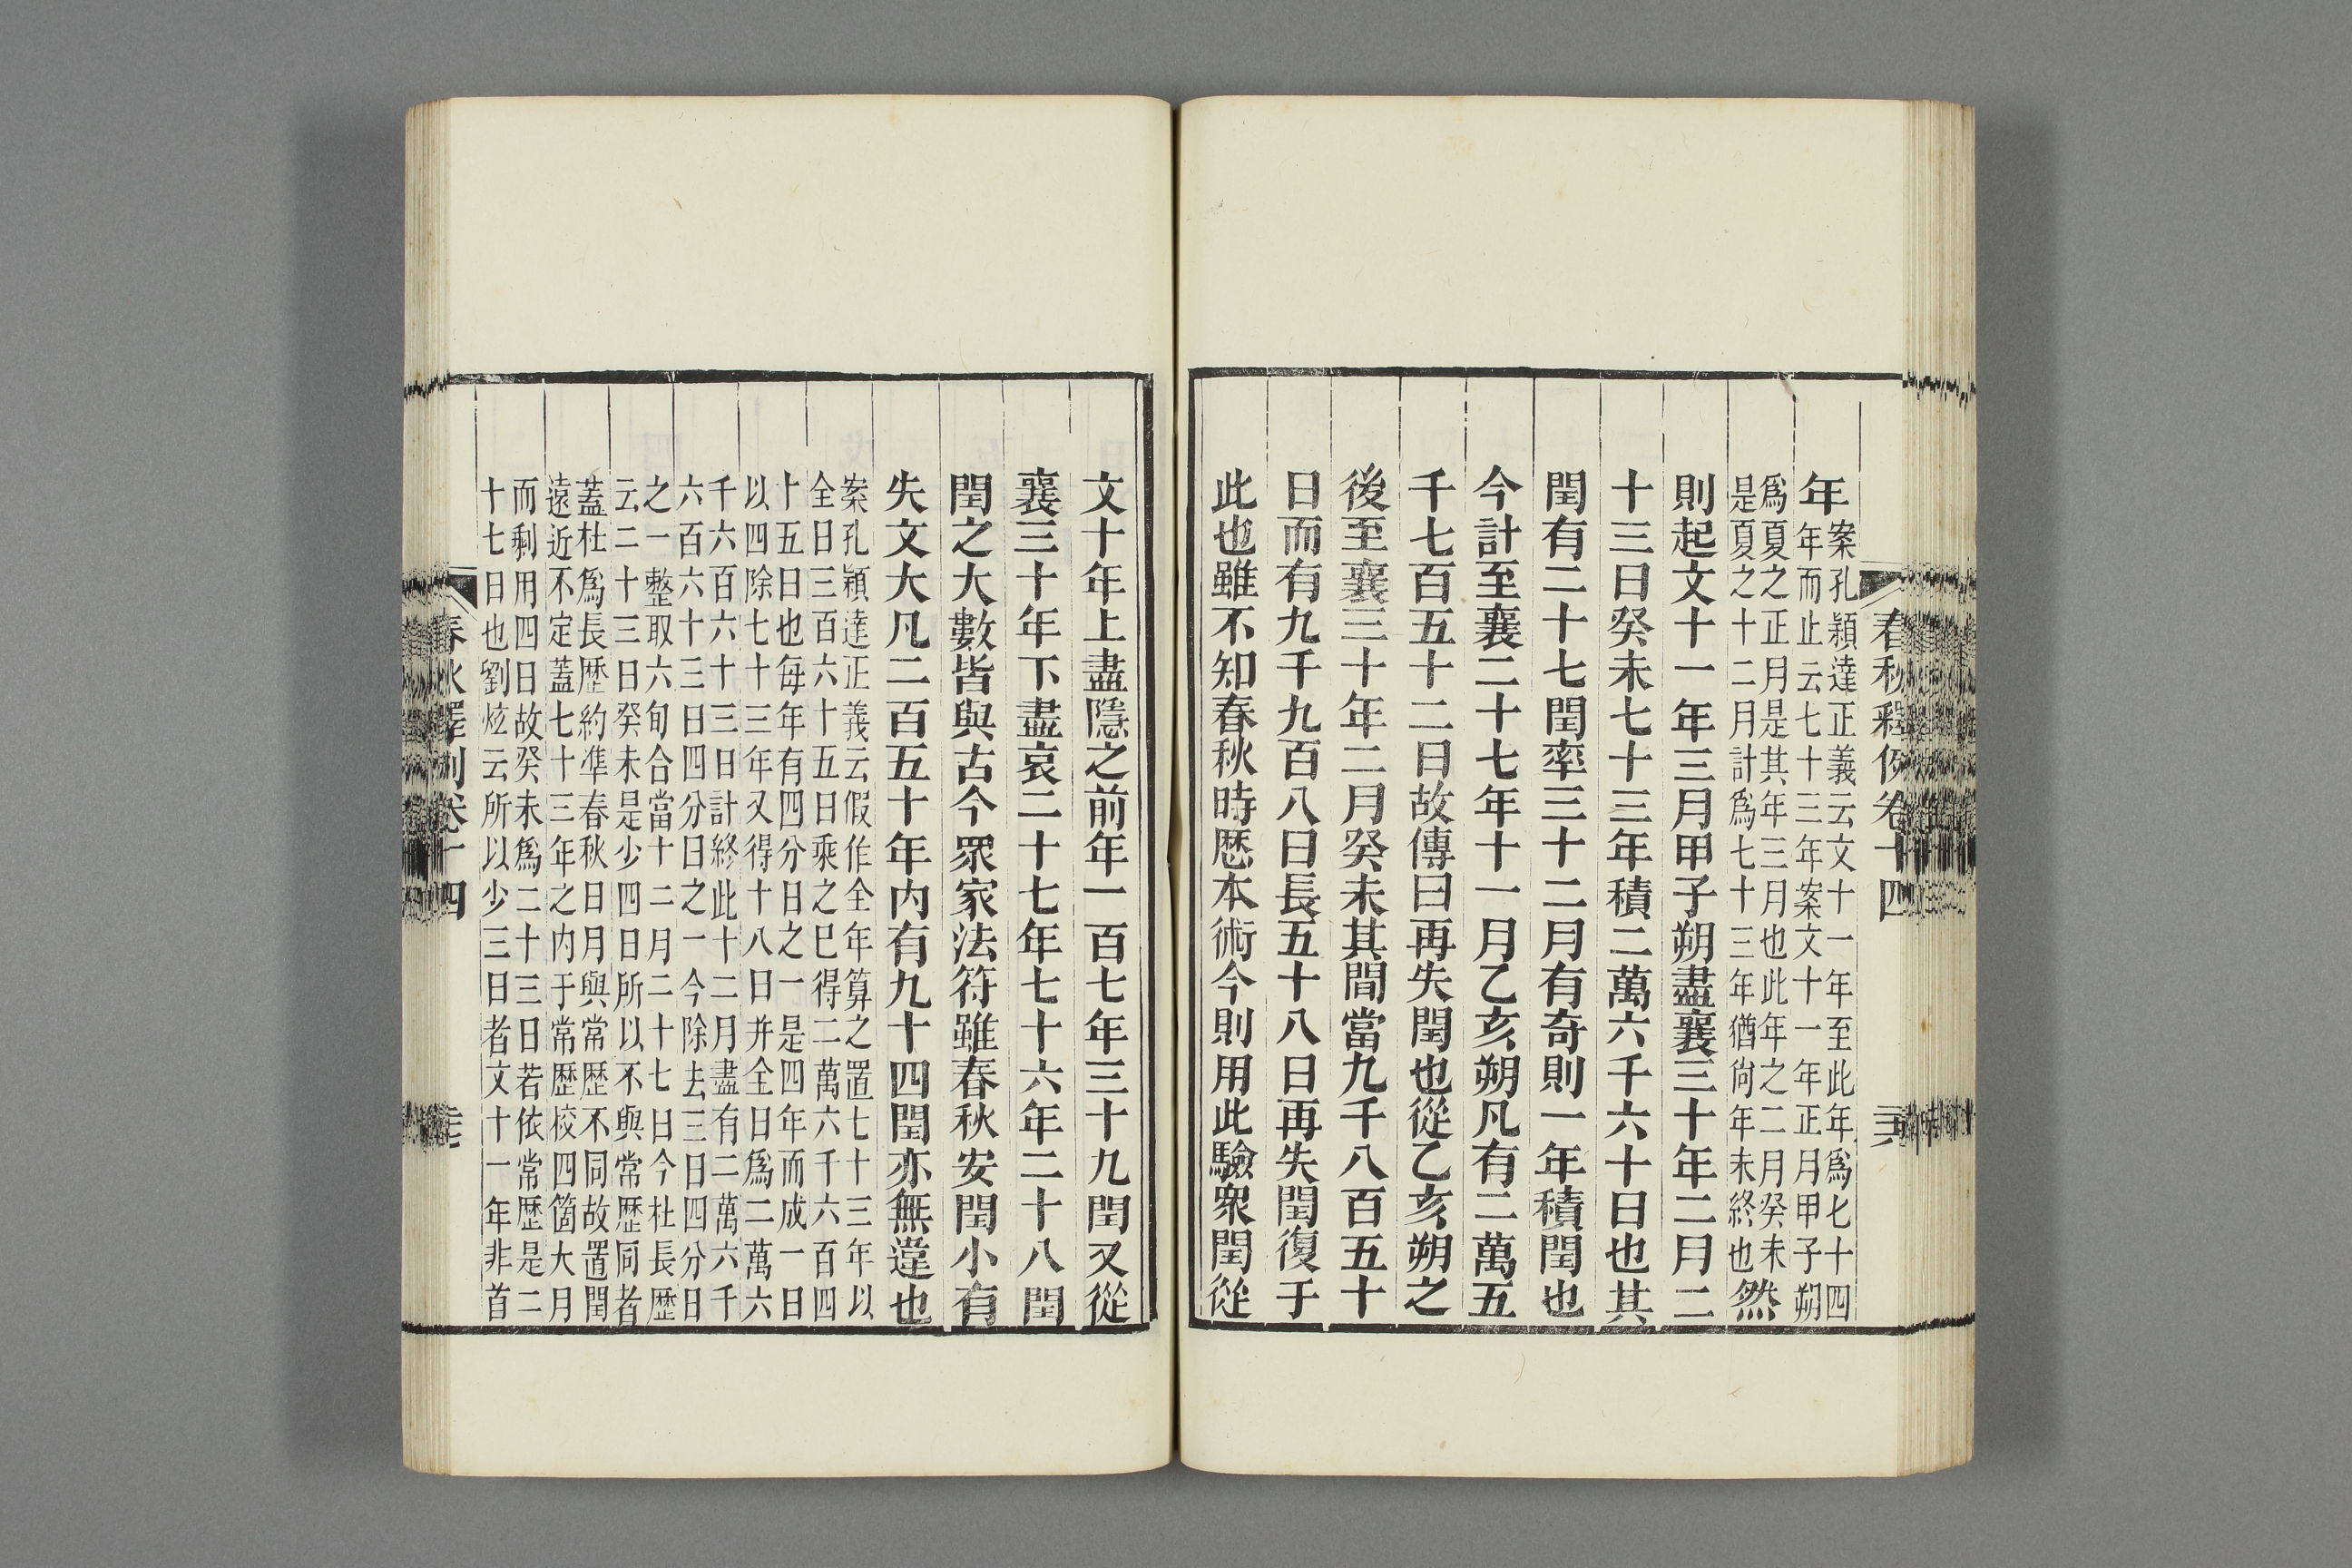 春秋釋例卷十四
年案孔穎達正義云文十一年至此年爲七十四
年而止云七十三年案文十一年正月甲子朔
爲夏之正月是其年三月也此年之二月癸未
是夏之十二月計爲七十三年猶尙年未終也然
則起文十一年三月甲子朔盡襄三十年二月二
十三日癸未七十三年積二萬六千六十日也其
閏有二十七閏率三十二月有奇則一年積閏也
今計至襄二十七年十一月乙亥朔凡有二萬五
千七百五十二日故傳曰再失閏也從乙亥朔之
後至襄三十年二月癸未其間當九千八百五十
日而有九千九百八日長五十八日再失閏復于
此也雖不知春秋時歷本術今則用此驗衆閏從
文十年上盡隱之前年一百七年三十九閏又從
襄三十年下盡哀二十七年七十六年二十八閏
閏之大數皆與古今眾家法符雖春秋安閏小有
失文大凡二百五十年內有九十四閏亦無違也
案孔穎達正義云假作全年算之置七十三年以
全日三百六十五日乘之巳得二萬六千六百四
十五日也每年有四分日之一是四年而成一日
以四除七十三年又得十八日并全日爲二萬六
千六百六十三日計終此十二月盡有二萬六千
六百六十三日四分日之一今除去三日四分日
之一整取六旬合當十二月二十七日今杜長歷
云二十三日癸未是少四日所以不與常歷同者
蓋杜爲長歷約準春秋日月與常歷不同故置閏
遠近不定蓋七十三年之內于常歷校四箇大月
而剩用四日故癸未爲二十三日若依常歷是二
十七日也劉炫云所以少三日者文十一年非首
春秋釋例卷十四